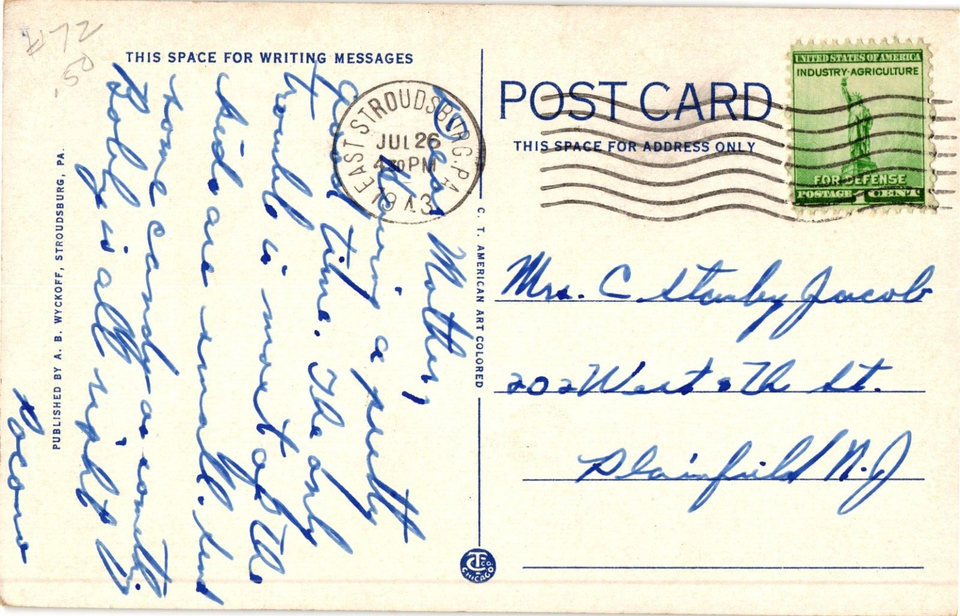 #72
.50
THIS SPACE FOR WRITING MESSAGES
Dear Mother,
Having a pretty
good time. The only
trouble is most of the
kids are small. Send
some candy or something
Bobby is all right
Pocono
PUBLISHED BY A. B. WYCKOFF, STROUDSBURG, PA.
EAST STROUDSBURG, PA.
JUL 26
4 30 PM
1943
C. T. AMERICAN ART COLORED
POST CARD
THIS SPACE FOR ADDRESS ONLY
UNITED STATES OF AMERICA
INDUSTRY·AGRICULTURE
FOR DEFENSE
POSTAGE 1 CENT
Mrs. C Stanley Jacob
202 West 8th St.
Plainfield N.J
CT CO.
CHICAGO